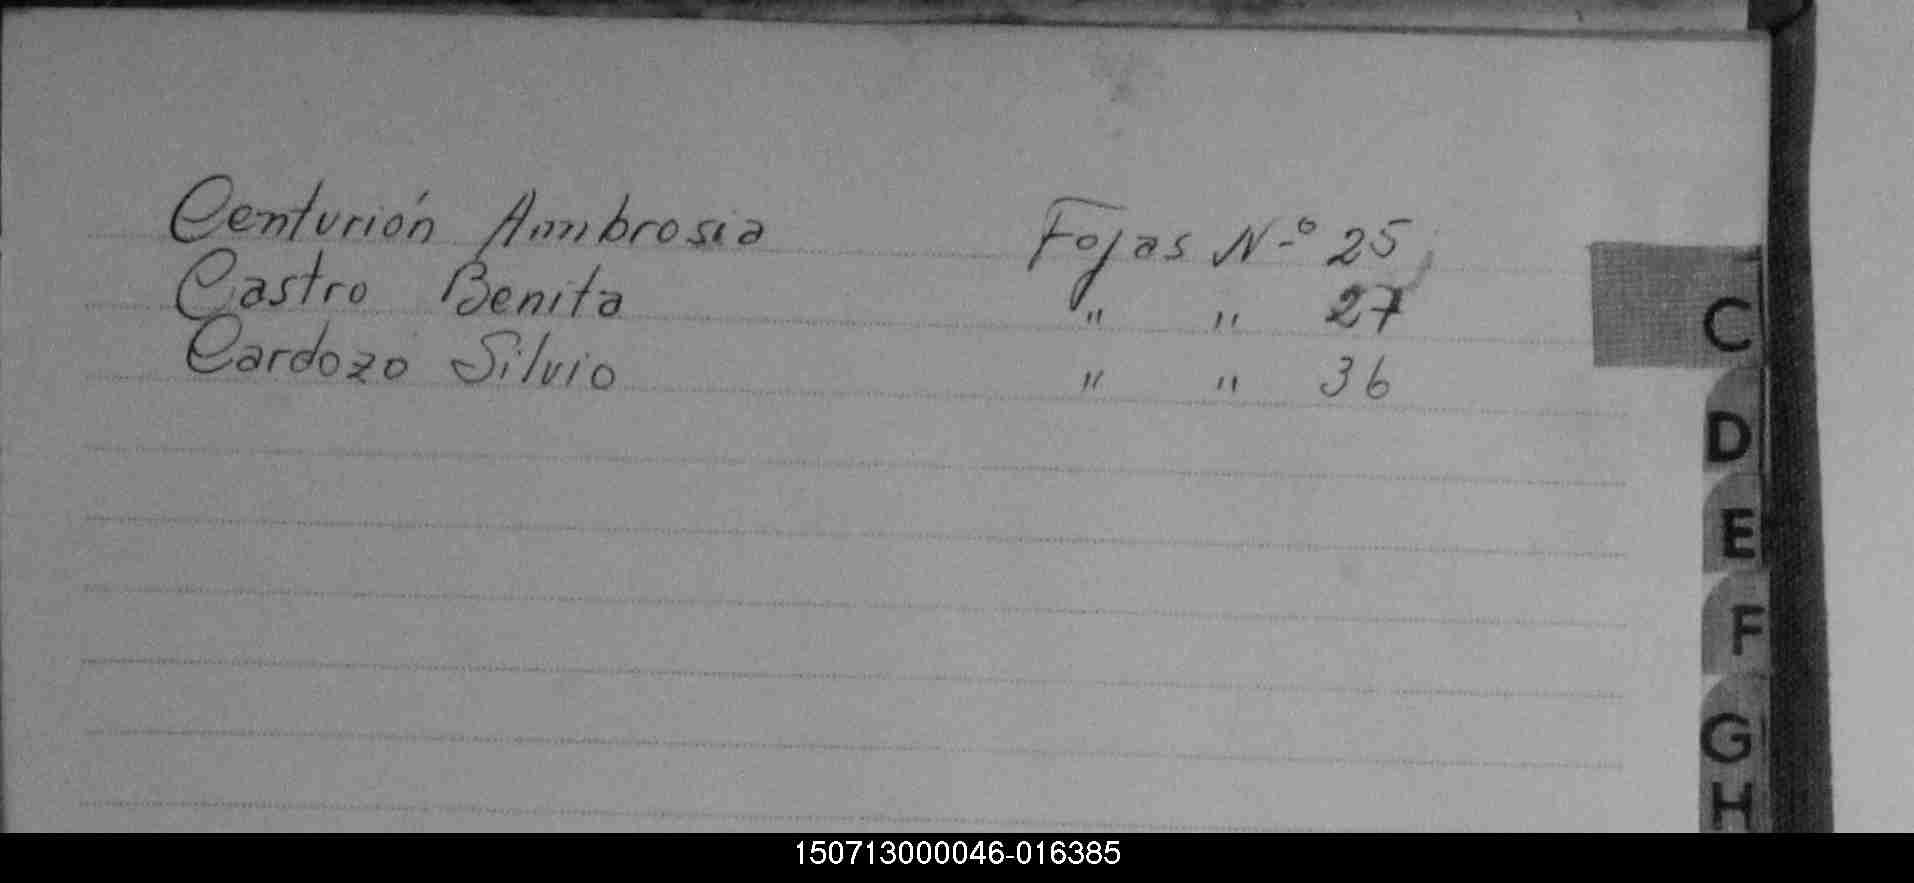 Centurión Ambrosia Fojas N-º 25
Castro Benita " " 27
Cardozo Silvio " " 36
C
D
E
F
G
H
150713000046-016385